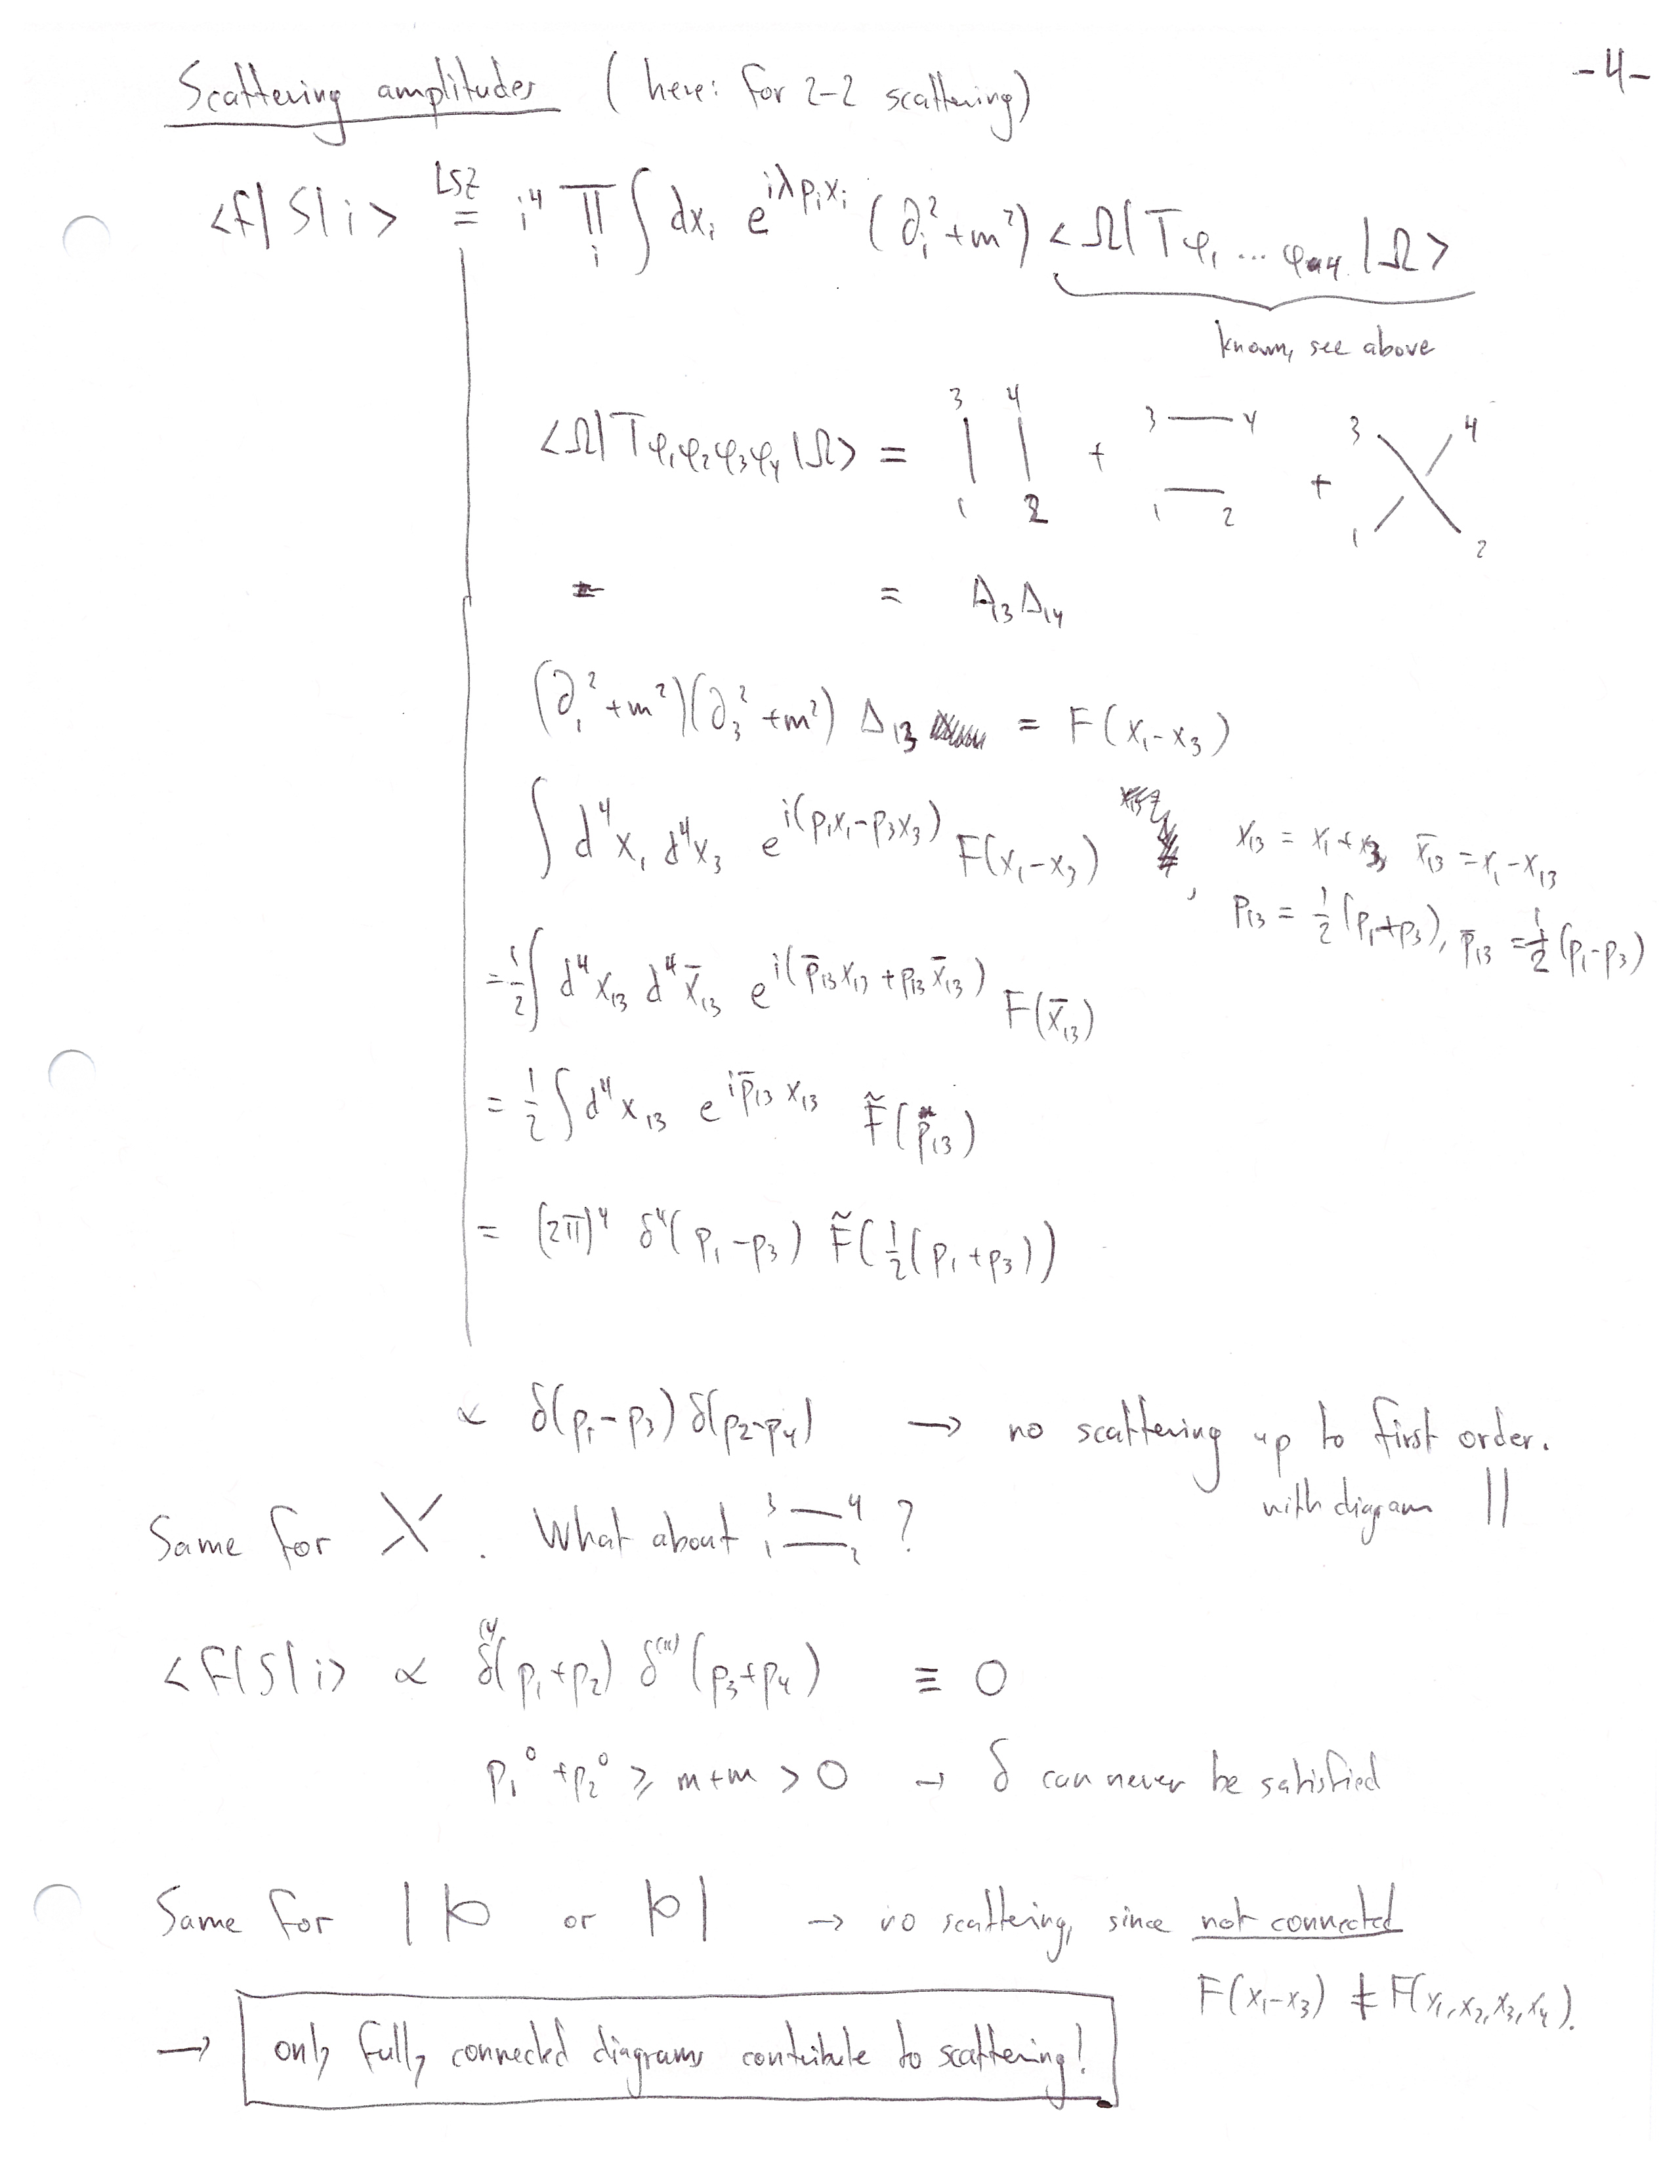 -4-
Scattering amplitudes (here: for 2-2 scattering)
<f|S|i> =^{LSZ} i⁴ ∏_i ∫ dx_i e^{iλp_i x_i} (∂_i² + m²) <Ω|Tφ₁ ... φ₄|Ω>
known, see above
<Ω|Tφ₁φ₂φ₃φ₄|Ω> = 3 4 | | 1 2 + 3 — 4 1 — 2 + 3 4 1 2
= Δ₁₃Δ₁₄
(∂₁² + m²)(∂₃² + m²) Δ₁₃ = F(x₁-x₃)
∫ d⁴x₁ d⁴x₃ e^{i(p₁x₁-p₃x₃)} F(x₁-x₃) , x₁₃ = x₁+x₃, x̄₁₃ = x₁-x₁₃
p₁₃ = ½(p₁+p₃), p̄₁₃ = ½(p₁-p₃)
= ½ ∫ d⁴x₁₃ d⁴x̄₁₃ e^{i(p̄₁₃x₁₃ + p₁₃x̄₁₃)} F(x̄₁₃)
= ½ ∫ d⁴x₁₃ e^{ip̄₁₃x₁₃} F̃(p₁₃)
= (2π)⁴ δ⁴(p₁-p₃) F̃(½(p₁+p₃))
∝ δ(p₁-p₃) δ(p₂-p₄) → no scattering up to first order.
with diagram ||
Same for X . What about 3 — 4 1 — 2 ?
<f|S|i> ∝ δ⁽⁴⁾(p₁+p₂) δ⁽⁴⁾(p₃+p₄) ≡ 0
p₁⁰ + p₂⁰ ≥ m+m > 0 → δ can never be satisfied
Same for or → no scattering, since not connected
F(x₁-x₃) ≠ F(x₁,x₂,x₃,x₄).
→ only fully connected diagrams contribute to scattering!